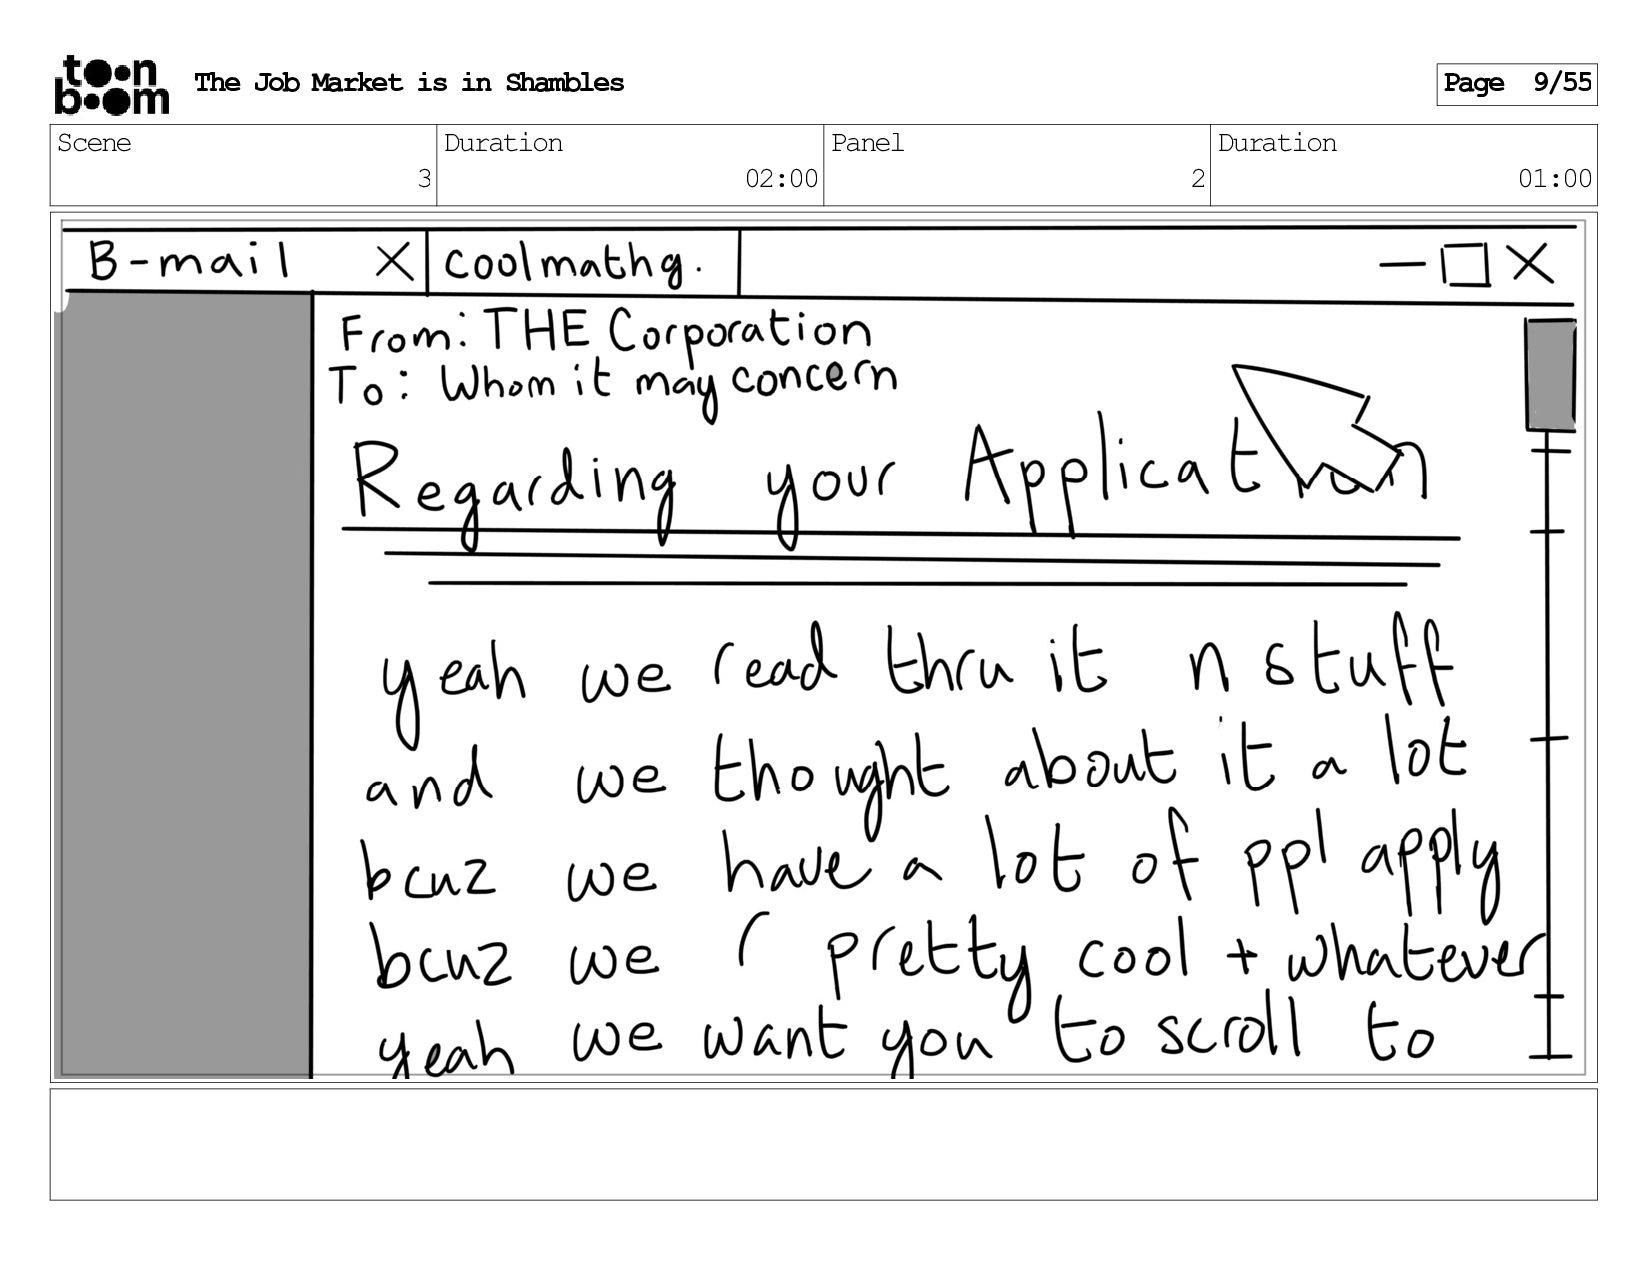 toon boom
The Job Market is in Shambles
Page 9/55
Scene
3
Duration
02:00
Panel
2
Duration
01:00
B-mail X coolmathg.
From: THE Corporation
To: Whom it may concern
Regarding your Application
yeah we read thru it n stuff
and we thought about it a lot
bcuz we have a lot of ppl apply
bcuz we r pretty cool + whatever
yeah we want you to scroll to